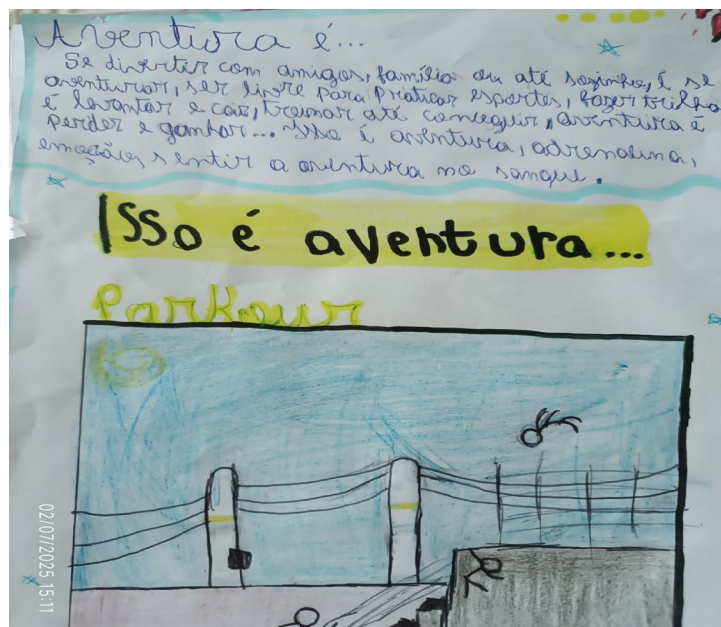 Aventura é...
Se divertir com amigos, família ou até sozinho, é se
aventurar, ser livre para praticar esportes, fazer trilha
é levantar e cair, treinar até conseguir, aventura é
perder e ganhar... Isso é aventura, adrenalina,
emoção, sentir a aventura no sangue.
Isso é aventura...
Parkour
02/07/2025 15:11